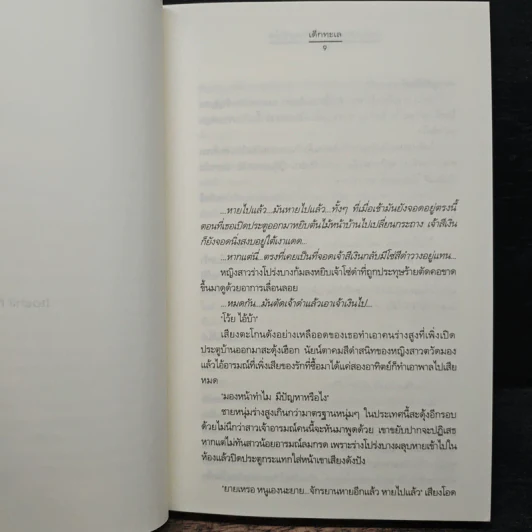 เด็กทะเล
๑
...หายไปแล้ว...มันหายไปแล้ว...ทั้งๆ ที่เมื่อเช้ามันยังจอดอยู่ตรงนี้
ตอนที่เธอเปิดประตูออกมาหยิบต้นไม้หน้าบ้านไปเปลี่ยนกระถาง เจ้าสีเงิน
ก็ยังจอดนิ่งสงบอยู่ใต้เงาแดด...
...หากแต่นี่...ตรงที่เคยเป็นที่จอดเจ้าสีเงินกลับมีโซ่สีดำวางอยู่แทน...
หญิงสาวร่างโปร่งบางก้มลงหยิบเจ้าโซ่ดำที่ถูกประทุษร้ายตัดคอขาด
ขึ้นมาดูด้วยอาการเลื่อนลอย
...หมดกัน...มันตัดเจ้าดำแล้วเอาเจ้าเงินไป...
'โว้ย ไอ้บ้า'
เสียงตะโกนดังอย่างเหลืออดของเธอทำเอาคนร่างสูงที่เพิ่งเปิด
ประตูบ้านออกมาสะดุ้งเฮือก นัยน์ตาคมสีดำสนิทของหญิงสาวตวัดมอง
แล้วไอ้อารมณ์ที่เพิ่งเสียของรักที่ซื้อมาได้แค่สองอาทิตย์ก็ทำเอาพาลไปเสีย
หมด
'มองหน้าทำไม มีปัญหาหรือไง'
ชายหนุ่มร่างสูงเกินกว่ามาตรฐานหนุ่มๆ ในประเทศนี้สะดุ้งอีกรอบ
ด้วยไม่นึกว่าสาวเจ้าอารมณ์คนนี้จะหันมาพูดด้วย เขาขยับปากจะปฏิเสธ
หากแต่ไม่ทันสาวน้อยอารมณ์ลมกรด เพราะร่างโปร่งบางผลุบหายเข้าไปใน
ห้องแล้วปิดประตูกระแทกใส่หน้าเขาเสียงดังปัง
'ยายเหรอ หนูเองนะยาย...จักรยานหายอีกแล้ว หายไปแล้ว' เสียงโอด